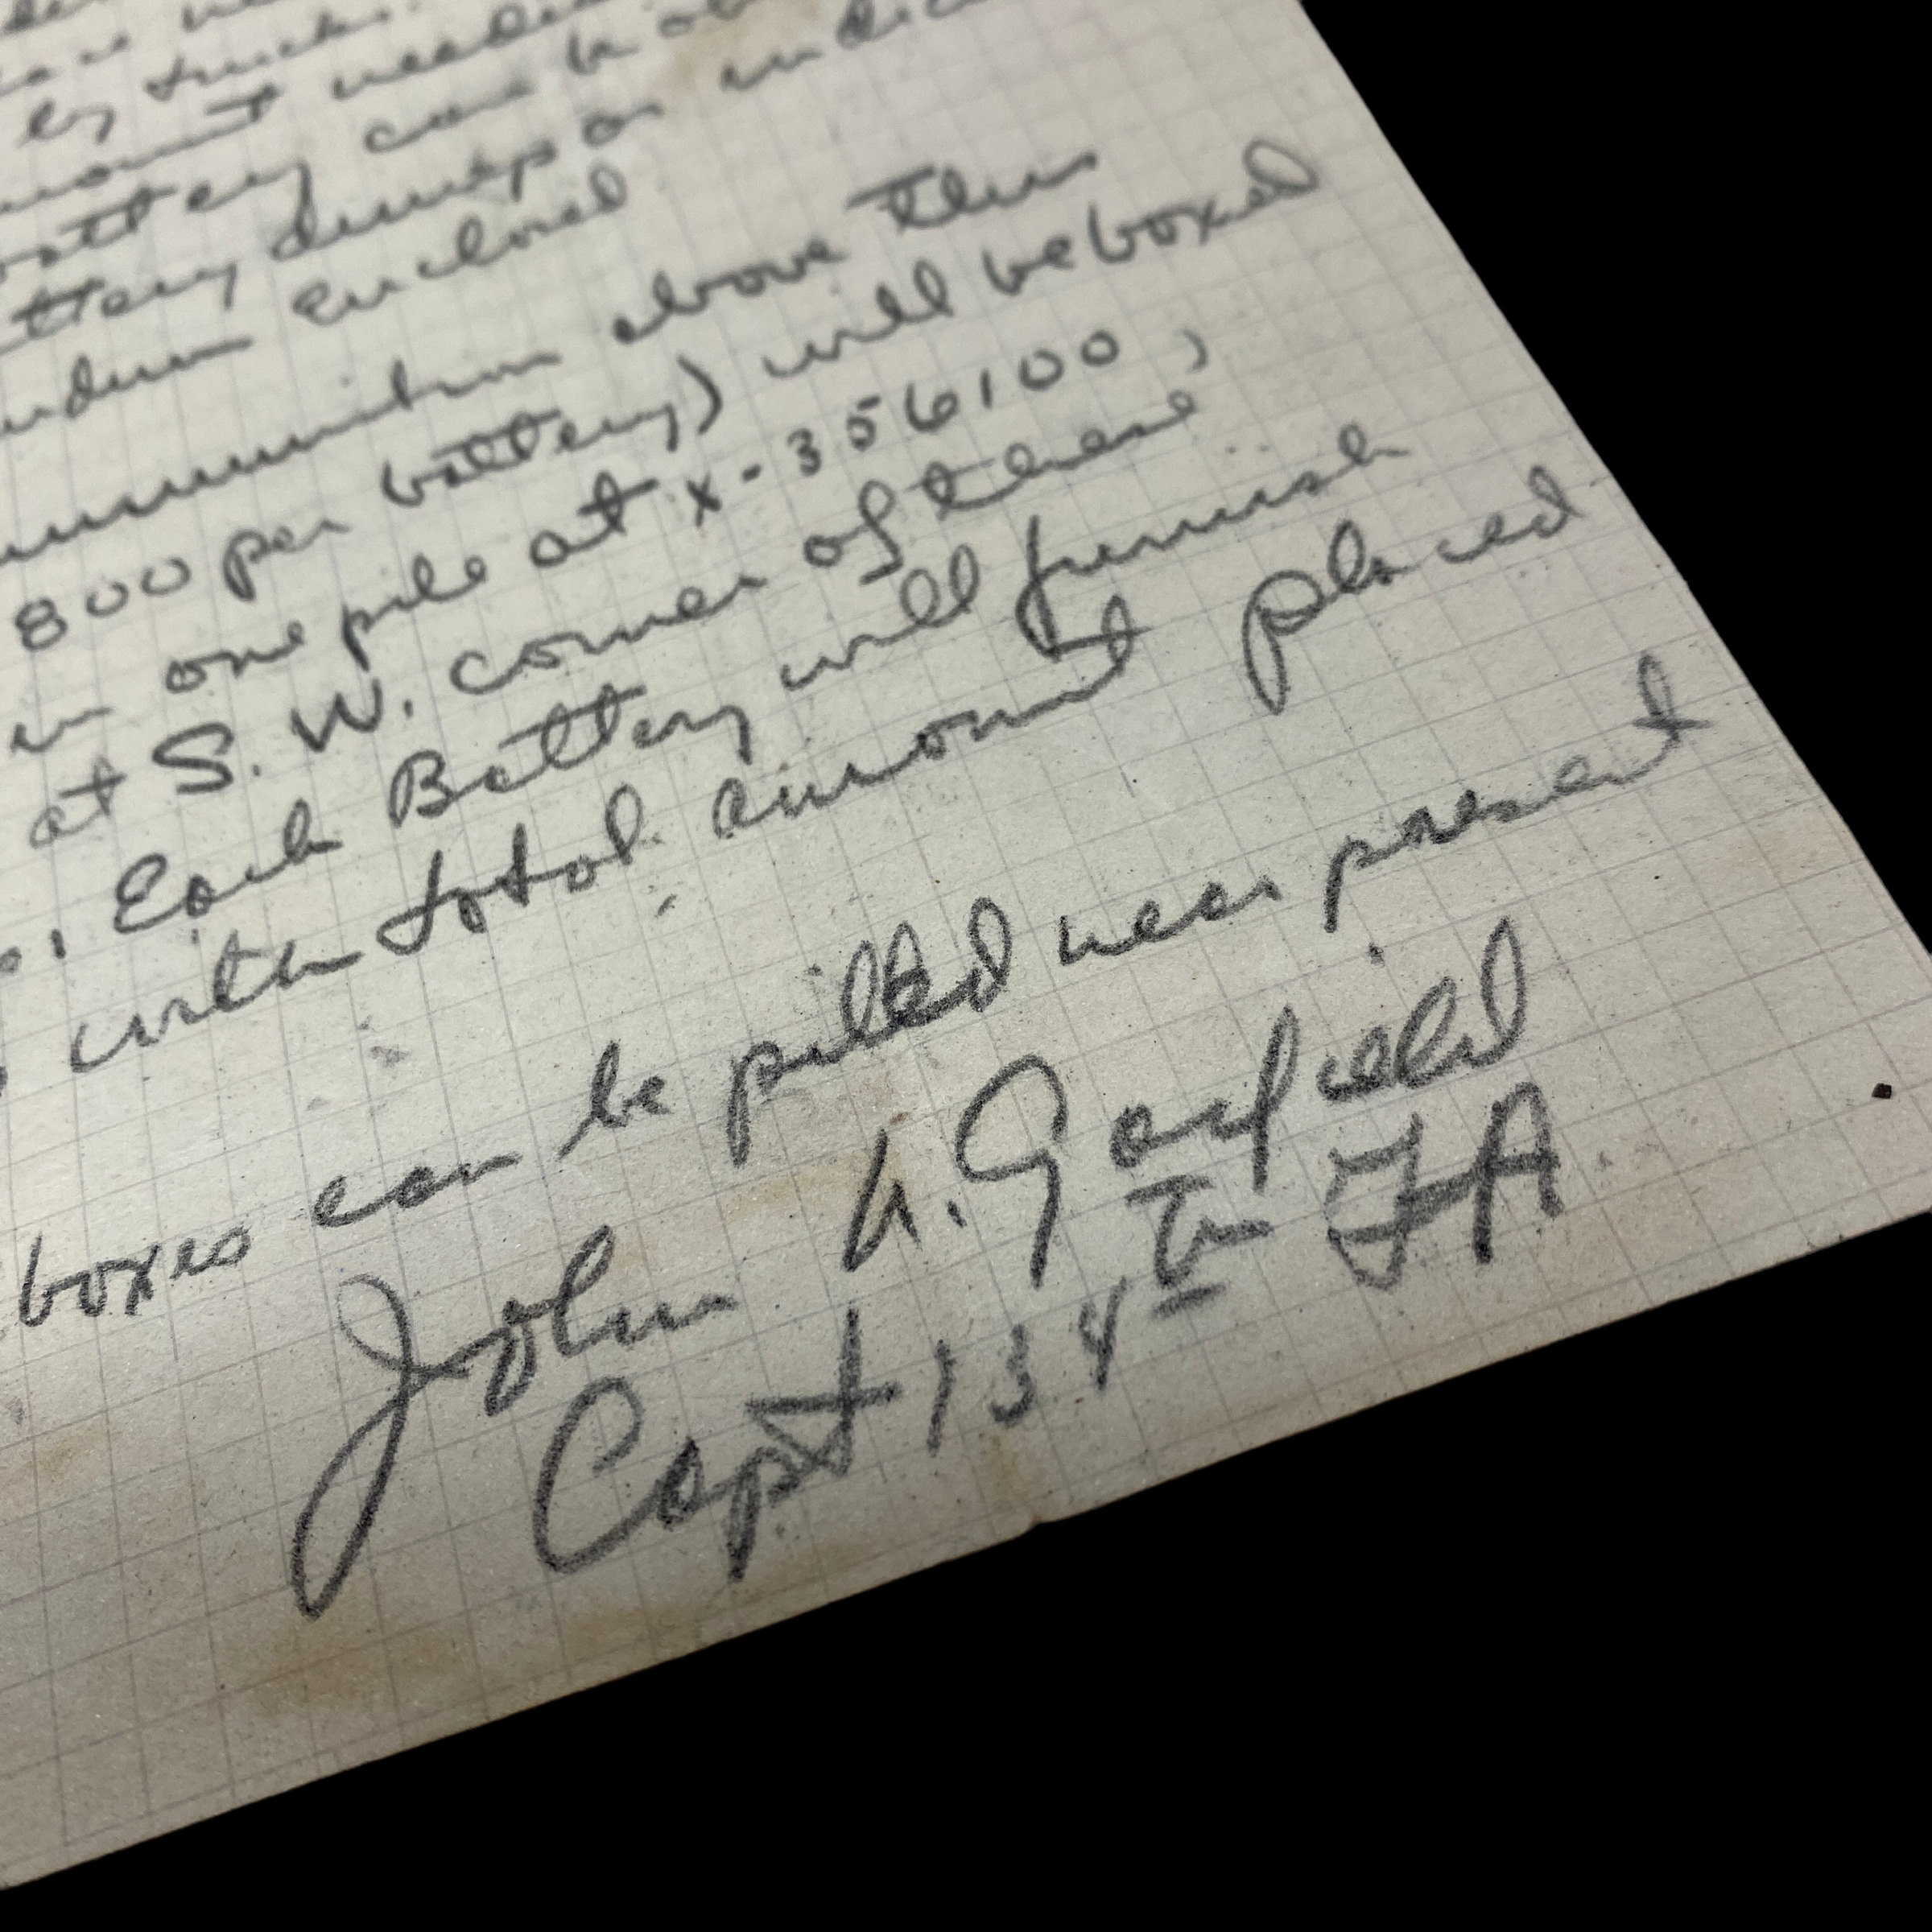 by truck.
amount needed
battery can be
battery dump or indic
andum enclosed
ammunition above this
800 per battery) will be boxed
in one pile at x-356100,
at S. W. corner of these
. Each Battery will furnish
with total amount placed
boxes can be pilled near present
John N. Garfield
Capt 134th FA.